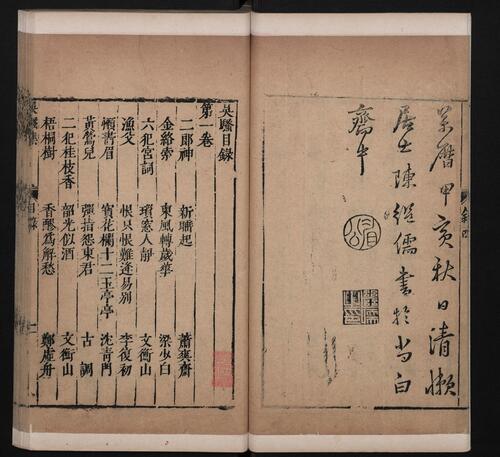 萬曆甲寅秋日清懶
居士陳繼儒書於尚白
齋中
吳騷目錄
第一卷
二郎神 新曠起 蕭爽齋
金絡索 東風轉歲華 梁少白
六犯宮詞 瑣窓人靜 文衡山
漁父 恨只恨難逢易別 李復初
頻書眉 寳花欄十二玉亭亭 沈青門
黃鶯兒 彈指怨東君 古調
二犯桂枝香 韶光似酒 文衡山
梧桐樹 香醪爲解愁 鄭虛舟